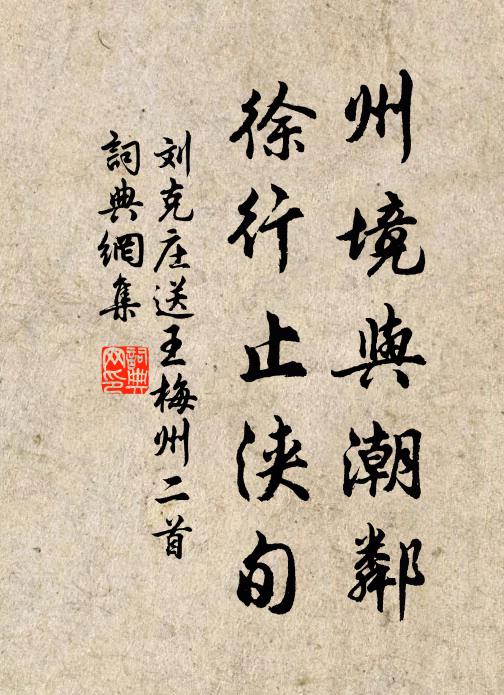 州境與潮鄰
徐行止浹旬
刘克庄送王梅州二首
詞典網集
詞典網印